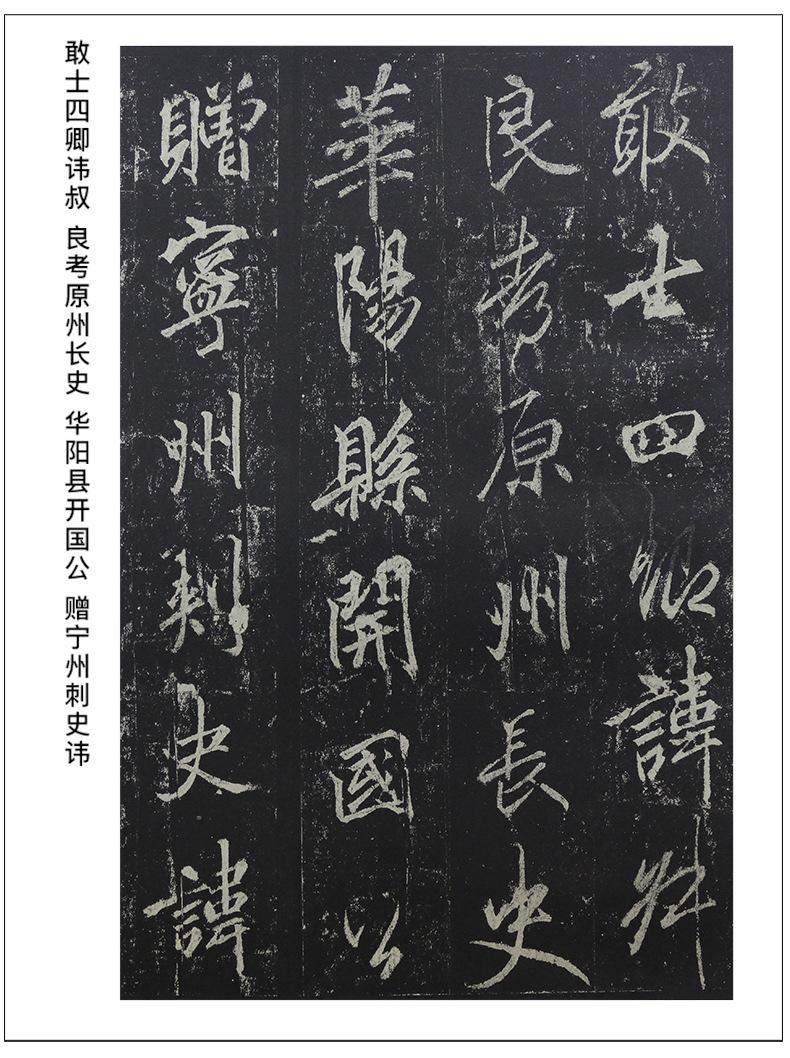 敢士四卿諱叔
良考原州長史
華陽縣開國公
贈寧州刺史諱
敢士四卿讳叔 良考原州长史 华阳县开国公 赠宁州刺史讳